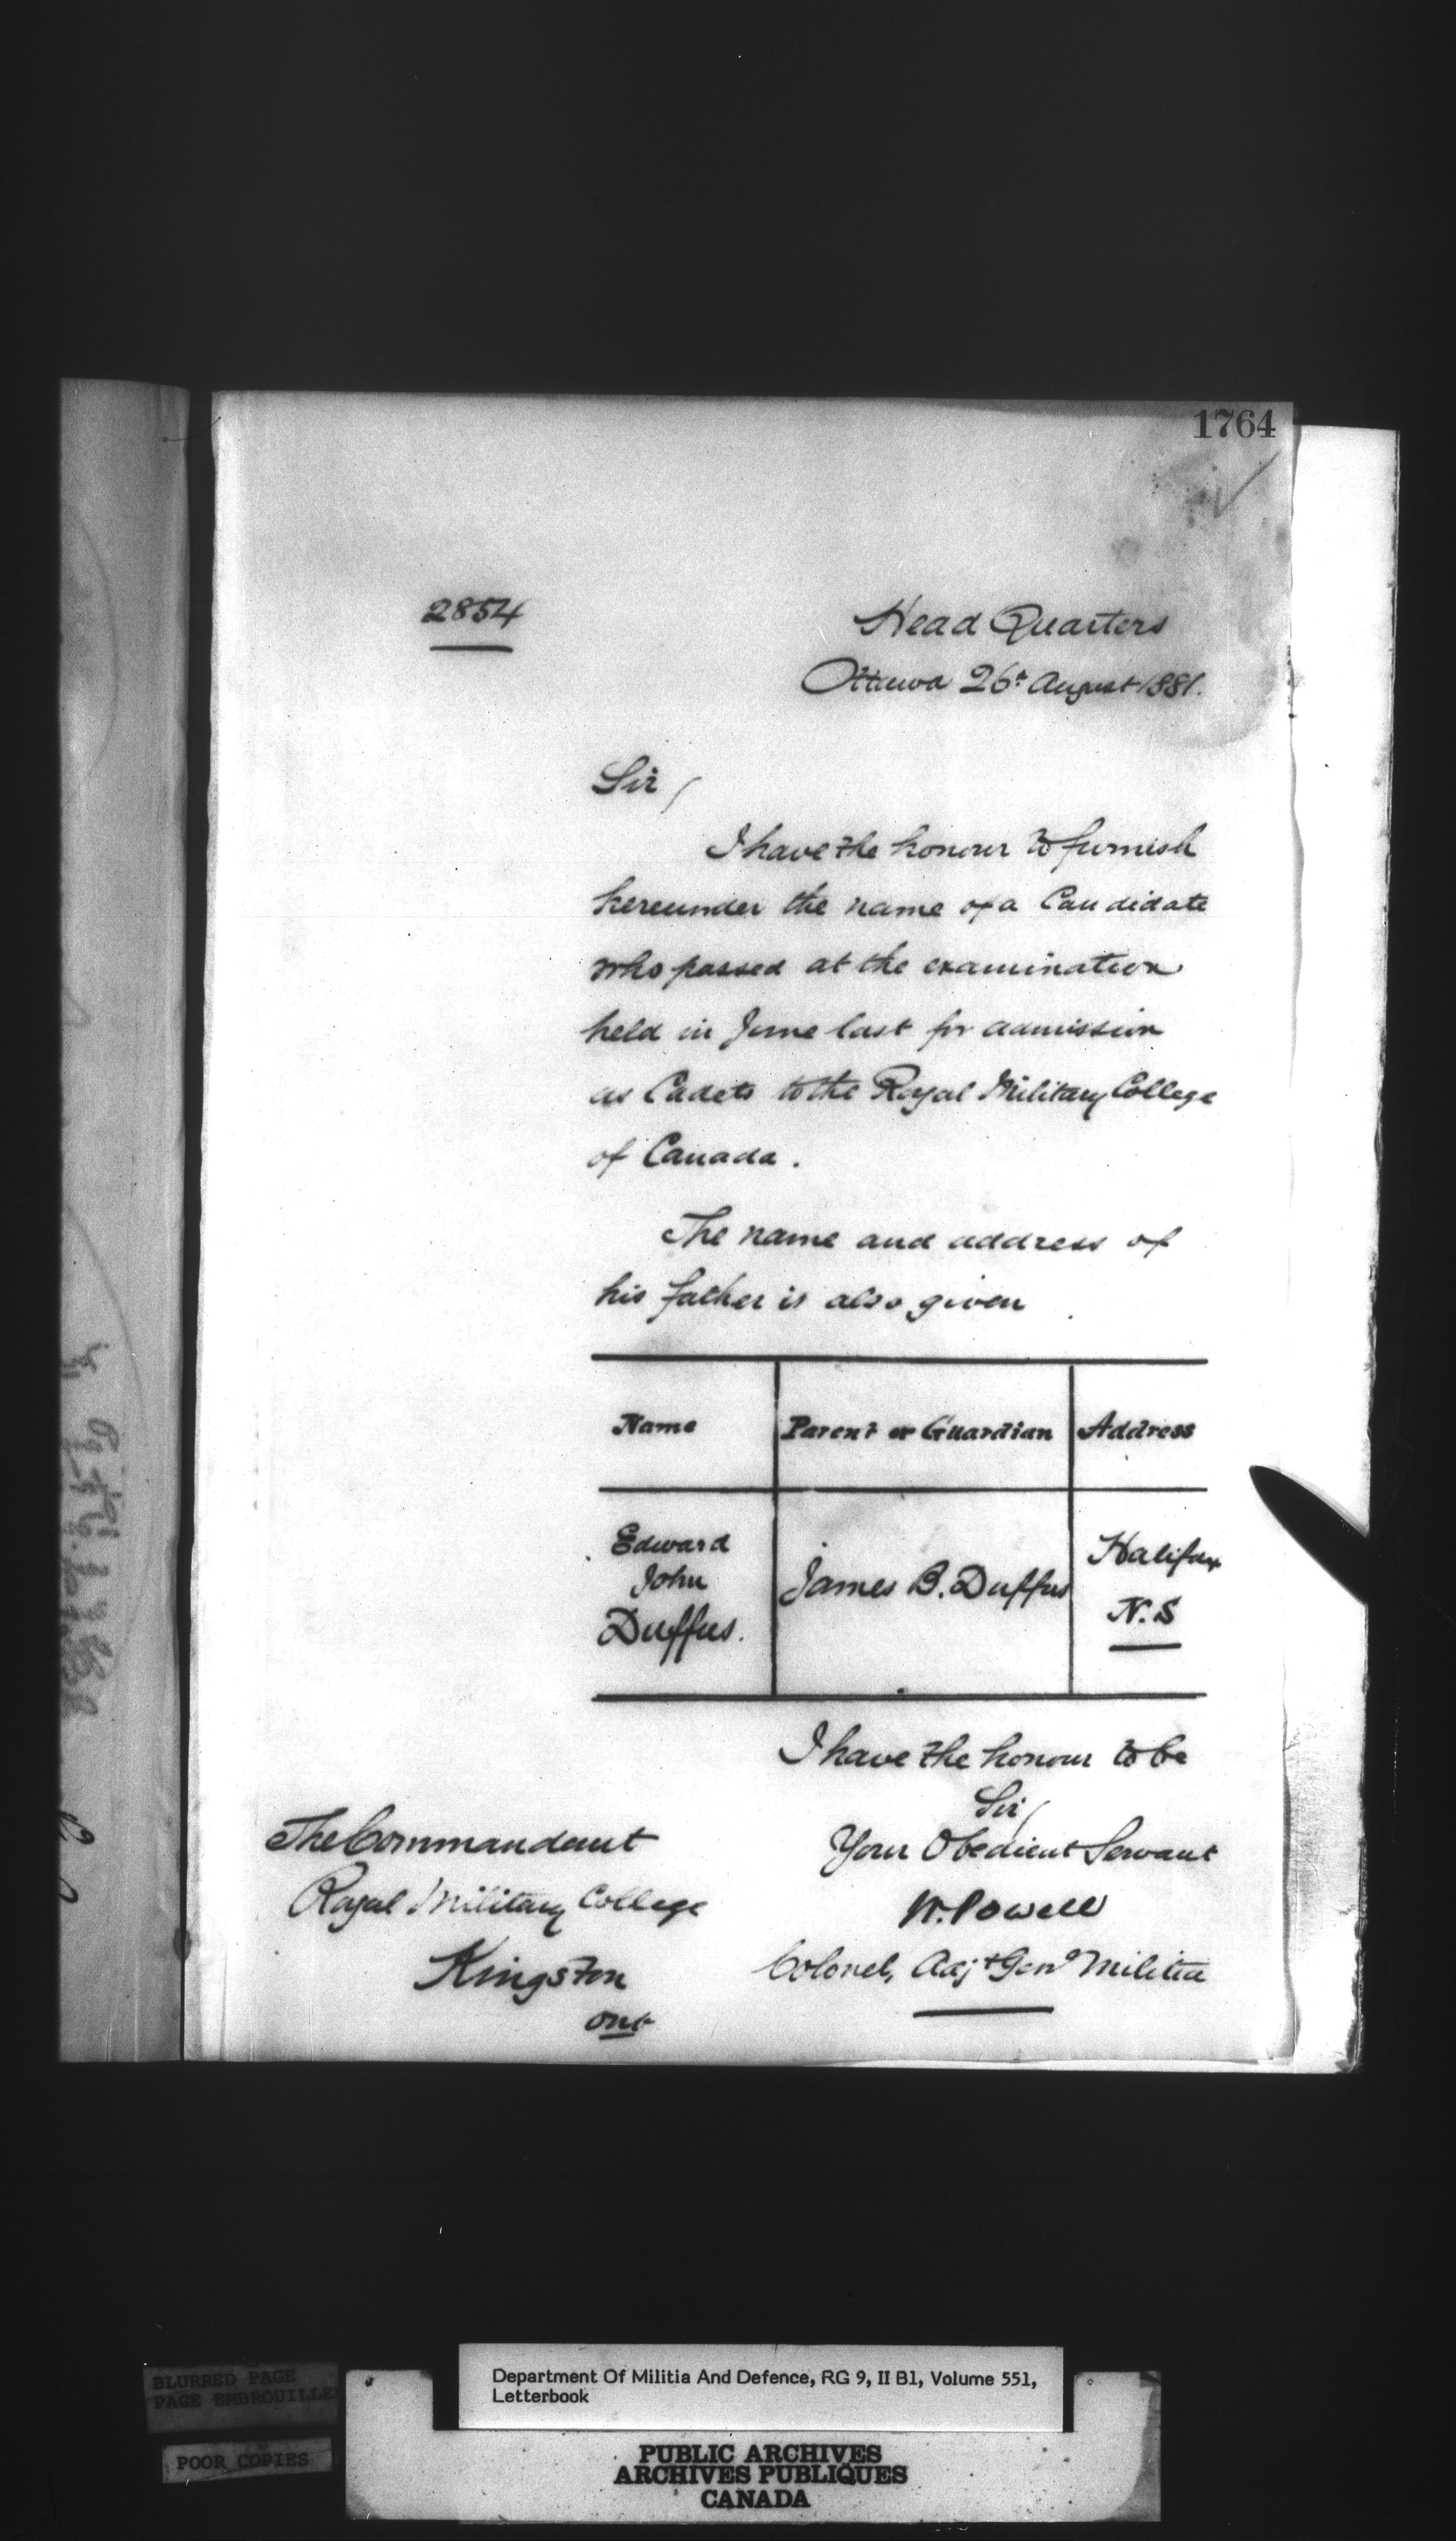 1764
2854
Head Quarters
Ottawa 26t August 1881.
Sir,
I have the honour to furnish
hereunder the name of a Candidate
who passed at the examination
held in June last for admission
as Cadets to the Royal Military College
of Canada.
The name and address of
his father is also given
Name Parent or Guardian Address
Edward John Duffus. James B. Duffus Halifax N.S
I have the honour to be
Sir,
Your Obedient Servant
W. Powell
Colonel, Adjt Genl Militia
The Commandant
Royal Military College
Kingston
Ont
BLURRED PAGE
PAGE EMBROUILLE
POOR COPIES
Department Of Militia And Defence, RG 9, II B1, Volume 551,
Letterbook
PUBLIC ARCHIVES
ARCHIVES PUBLIQUES
CANADA